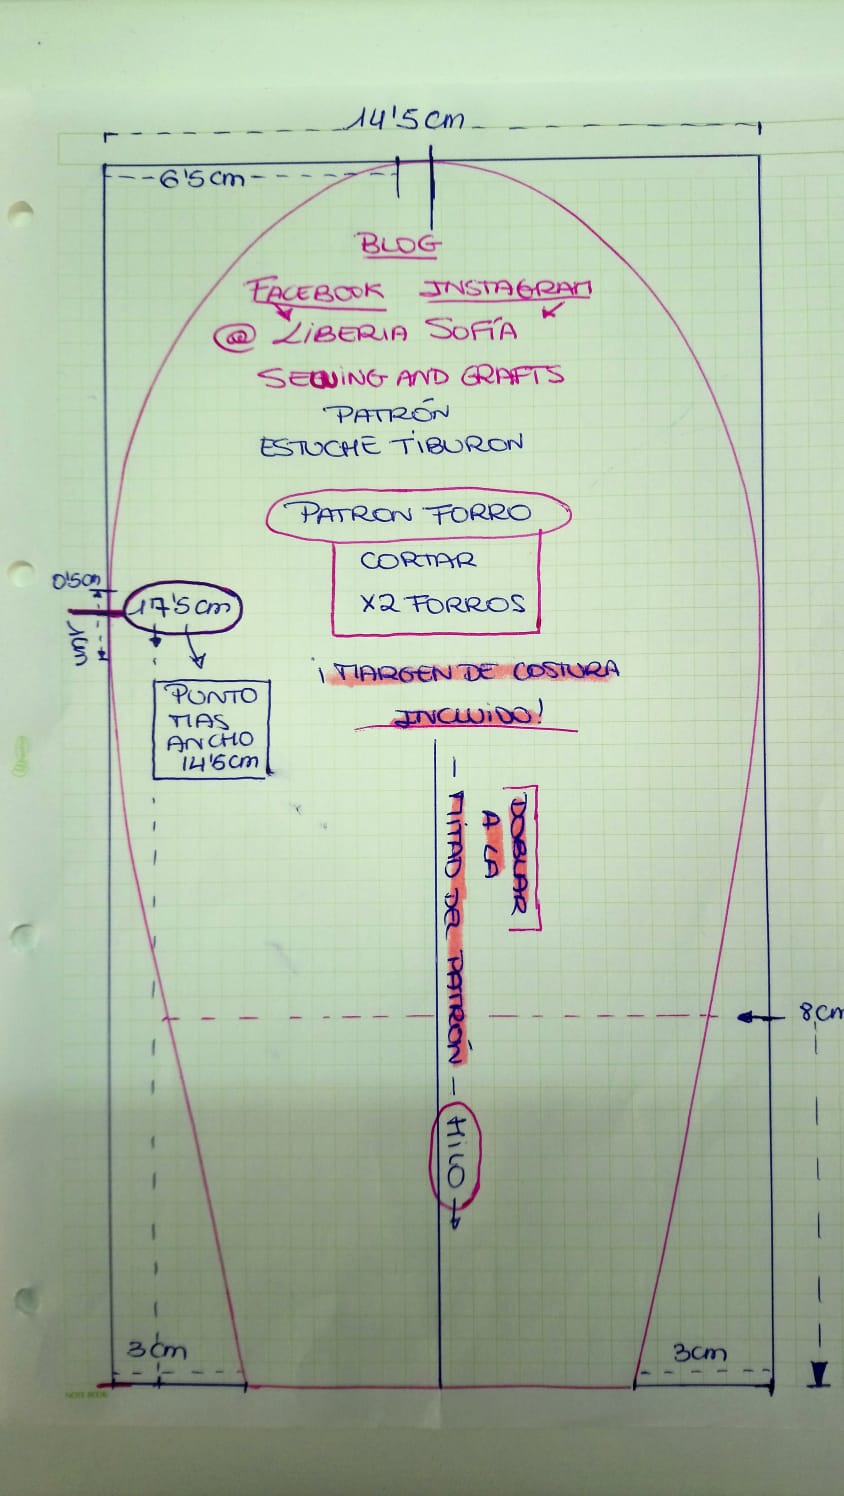 14'5cm
6'5cm
BLOG
FACEBOOK INSTAGRAM
@ LIBERIA SOFÍA
SEWING AND CRAFTS
PATRÓN
ESTUCHE TIBURON
PATRON FORRO
CORTAR
X2 FORROS
0'5cm
17'5cm
1cm
¡MARGEN DE COSTURA
INCLUIDO!
PUNTO
MAS
ANCHO
14'5cm
DOBLAR
A LA
— MITAD DEL PATRÓN — HILO →
8cm
3cm
3cm
NOTE BOOK